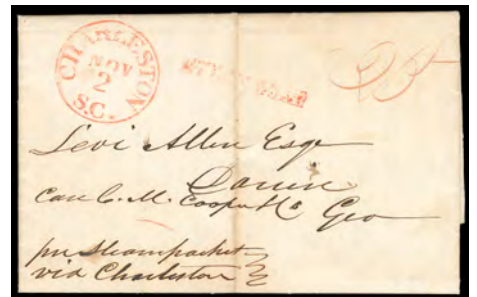 CHARLESTON
NOV
2
S.C.
STEAMBOAT
Levi Allen Esqr
Darien
Care C. M. Cooper & Co Geo
per Steampacket
via Charleston